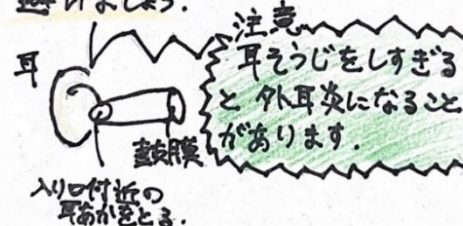 けましょう.
注意
耳そうじをしすぎる
と 外耳炎になること
があります.
耳
鼓膜
入り口付近の
耳あかをとる.